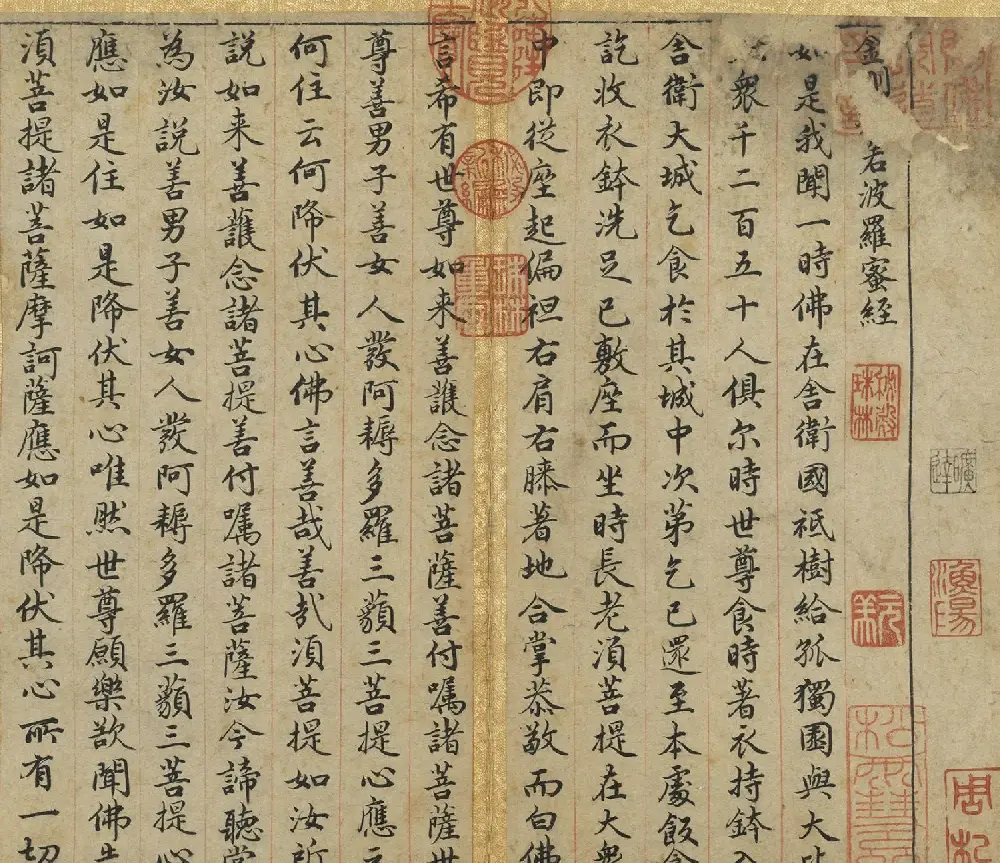 金刂 若波羅蜜經
如是我聞一時佛在舍衛國祇樹給孤獨園與大
衆千二百五十人俱尔時世尊食時著衣持鉢入
舍衛大城乞食於其城中次第乞已還至本處飯食
訖收衣鉢洗足已敷座而坐時長老湏菩提在大衆
中即從座起偏袒右肩右膝著地合掌恭敬而白佛
言希有世尊如来善護念諸菩薩善付嘱諸菩薩世
尊善男子善女人發阿耨多羅三藐三菩提心應云
何住云何降伏其心佛言善哉善哉湏菩提如汝所
説如来善護念諸菩提善付嘱諸菩薩汝今諦聽當
為汝説善男子善女人發阿耨多羅三藐三菩提心
應如是住如是降伏其心唯然世尊願樂欲聞佛告
湏菩提諸菩薩摩訶薩應如是降伏其心所有一切
珠林